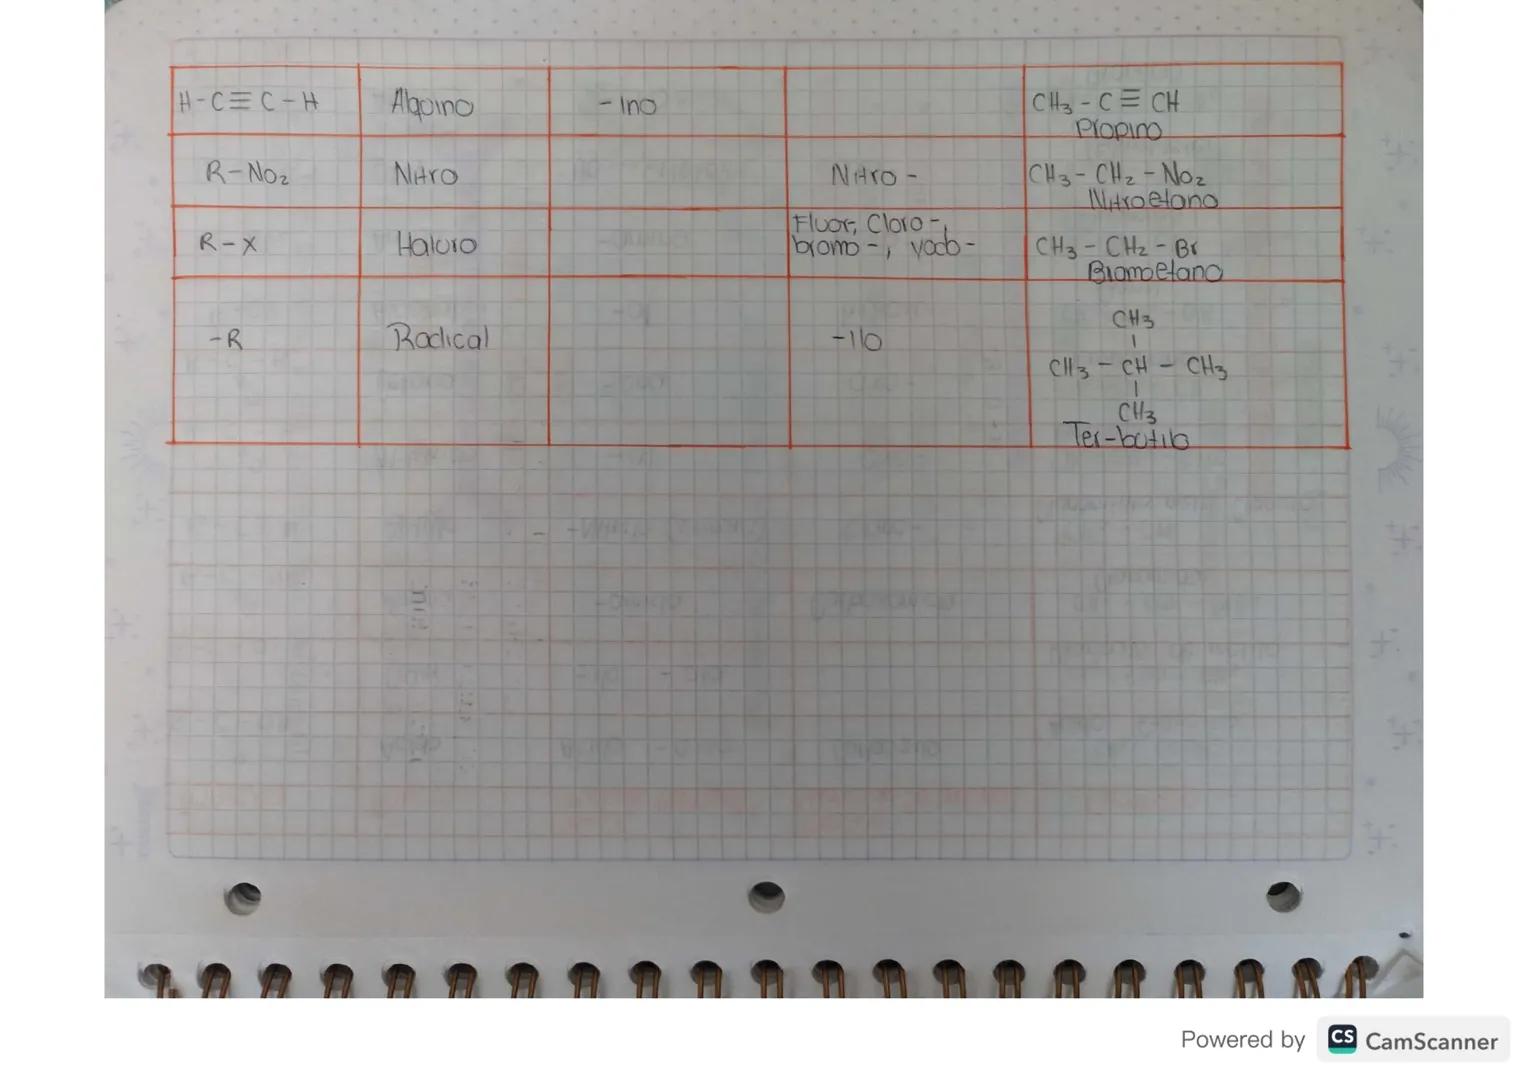 H-C≡C-H Alquino -ino CH3-C≡CH
Propino
R-NO2 Nitro Nitro- CH3-CH2-NO2
Nitroetano
R-X Haluro Fluor, Cloro-,
bromo-, yodo- CH3-CH2-Br
Bromoetano
-R Radical -ilo CH3
CH3-CH-CH3
CH3
Ter-butilo
Powered by CS CamScanner